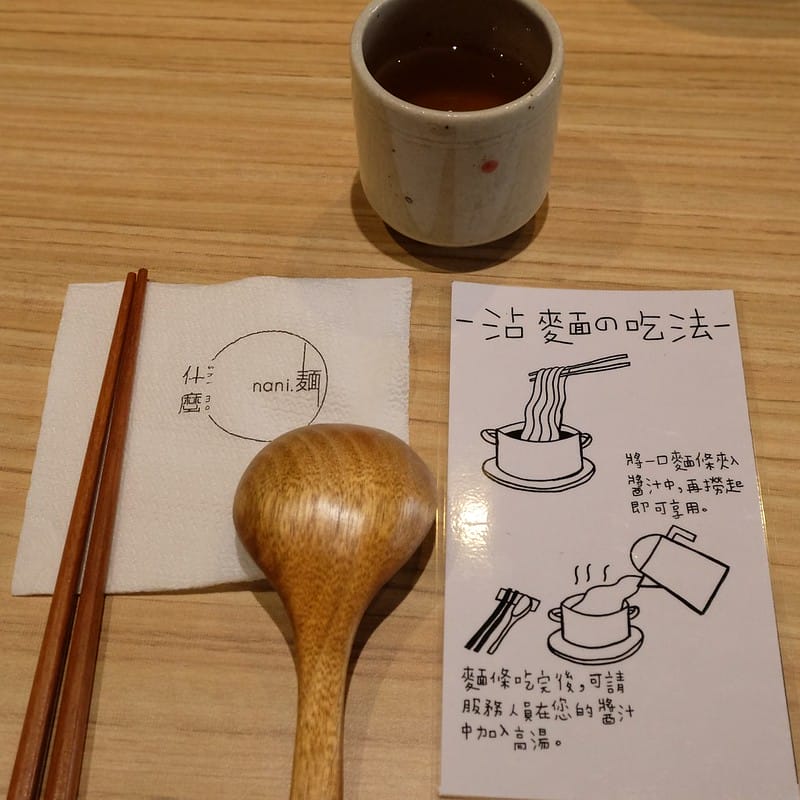 什麼
ㄕㄜˊ
nani.麺
-沾麵の吃法-
將一口麵條夾入
醬汁中,再撈起
即可享用。
麵條吃完後,可請
服務人員在您的醬汁
中加入高湯。